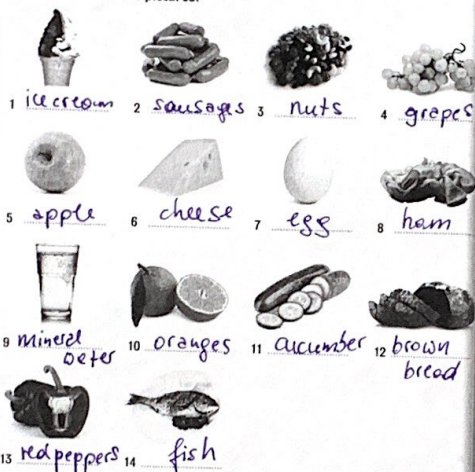 1 ice cream 2 sausages 3 nuts 4 grapes
5 apple 6 cheese 7 egg 8 ham
9 mineral water 10 oranges 11 cucumber 12 brown bread
13 red peppers 14 fish